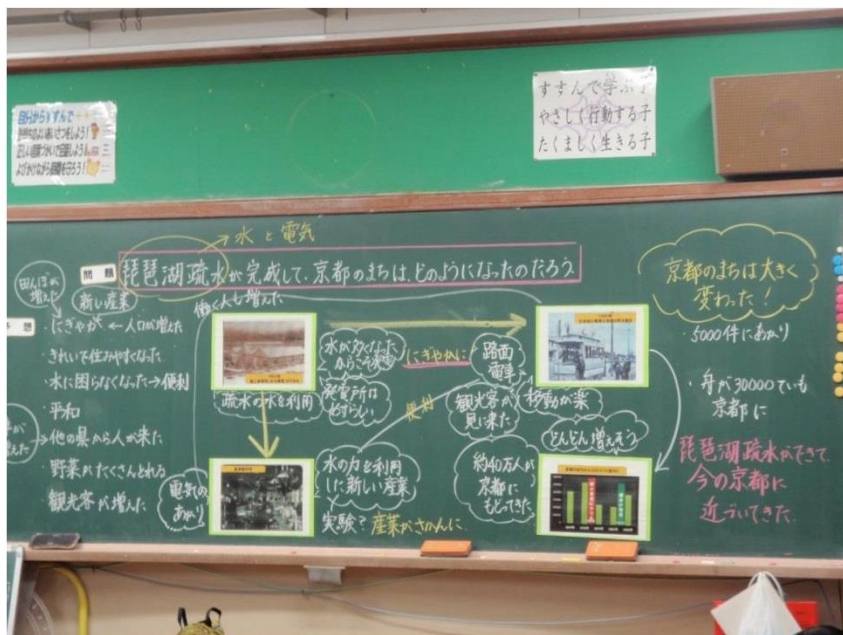 自分からすすんで
すすんで学ぶ子
やさしく行動する子
たくましく生きる子
水と電気
問題
琵琶湖疏水が完成して、京都のまちは、どのようになったのだろう。
田んぼが
増えた
新しい産業
働く人も増えた
想
にぎやか ← 人口が増えた
きれいで住みやすくなった
水に困らなくなった→便利
平和
他の県から人が来た
野菜がたくさんとれる
観光客が増えた
増えた
疏水の水を利用
水が多くなった
からこそ
発電所は
めずらしい
にぎやかに
便利
路面
電車
観光客が
見に来た
移動が楽
どんどん増えそう
電気の
あかり
水の力を利用
した新しい産業
実験?産業がさかんに
約40万人が
京都に
もどってきた
京都のまちは大きく
変わった!
・5000件にあかり
・舟が30000ていも
京都に
琵琶湖疏水ができて、
今の京都に
近づいてきた。